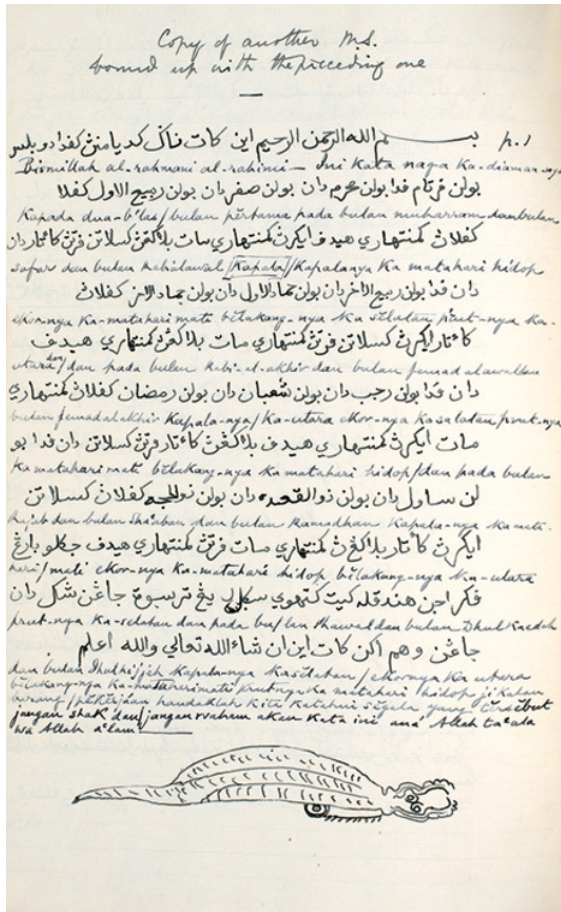 Copy of another M.S.
bound up with the preceding one
بسم الله الرحمن الرحيم اين كات ناݢ كديامنڽ كڤد دوبلس p. 1
Bismillah al-rahmani al-rahimi — Ini kata naga ka-diaman-nya
بولن ڤرتام ڤدا بولن محرم دان بولن صفر دان بولن ربيع الاول كڤلا
Kapada dua-b'las / bulan pĕrtama pada bulan muharram dan bulan
كڤلاڽ كمنتهاري هيدڤ ايكرڽ كمنتهاري مات بلاكڠڽ كسلاتن ڤرتڽ كأوتار دان
safar dan bulan Rabialawal [Kapala] / Kapalanya Ka matahari hidop
دان ڤدا بولن ربيع الاخر دان بولن جماد الاول دان بولن جماد الاخر كڤلاڽ
ekor-nya Ka-matahari mati bĕlakang-nya Ka sĕlatan prut-nya Ka-
كأوتار ايكرڽ كسلاتن ڤرتڽ كمنتهاري مات بلاكڠڽ كمنتهاري هيدڤ
utara dan / dan pada bulan Rabi-al-akhir dan bulan jumadalawal dan
دان ڤدا بولن رجب دان بولن شعبان دان بولن رمضان كڤلاڽ كمنتهاري
bulan jumadalakhir Kapala-nya / Ka-utara ekor-nya Ka salatan prut-nya
مات ايكرڽ كمنتهاري هيدڤ بلاكڠڽ كأوتار ڤرتڽ كسلاتن دان ڤدا بو
Ka matahari mati bĕlakang-nya Ka matahari hidop / dan pada bulan
لن ساول دان بولن ذوالقعده دان بولن ذوالحجه كڤلاڽ كسلاتن
Rajab dan bulan Sha'aban dan bulan Ramadhan Kapala-nya Ka mata-
ايكرڽ كأوتار بلاكڠڽ كمنتهاري مات ڤرتڽ كمنتهاري هيدڤ جكلو بارڠ
hari / mati ekor-nya Ka-matahari hidop bĕlakang-nya Ka-utara
ڤكرجاءن هندقله كيت كتهوي سكل يڠ ترسبوة جاڠن شكل دان
prut-nya Ka-selatan dan pada bu / lan Shawal dan bulan Dhulkaedah
جاڠن وهم اكن كات اين ان شاء الله تعالي والله اعلم
dan bulan Dhulhijjeh Kapala-nya Ka sĕlatan / ekornya Ka utara
bĕlakang-nya Ka-matahari mati prutnya Ka matahari hidop jikalau
barang / pĕkĕrjaan handaklah kita katahui sĕgala yang tĕrsĕbut
jangan shak dan / jangan waham akan kata ini ana' Allah ta'ala
wa Allah a'lam